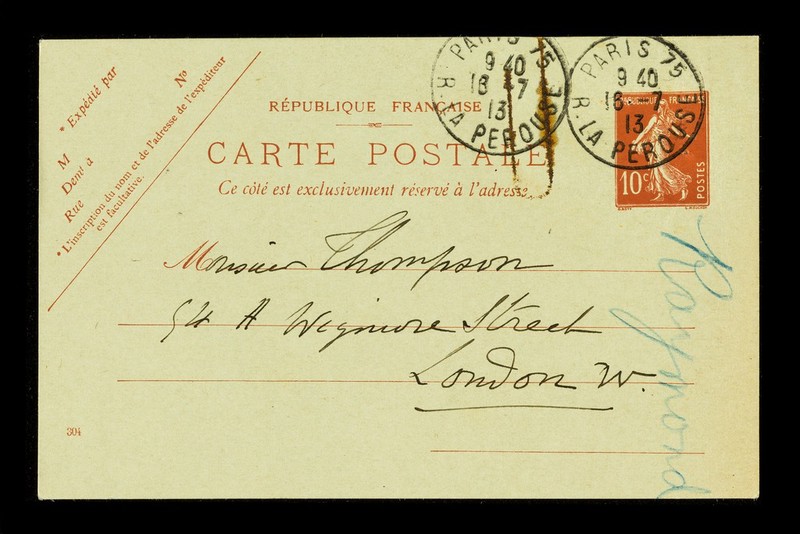 * Expédié par
Nº
M
Demt a
Rue
* L'inscription du nom et de l'adresse de l'expéditeur
est facultative.
RÉPUBLIQUE FRANÇAISE
CARTE POSTALE
Ce côté est exclusivement réservé à l'adresse.
PARIS 75
9 40
16 -7
13
R. LA PEROUSE
PARIS 75
9 40
16 -7
13
R. LA PEROUSE
REPUBLIQUE FRANÇAISE
10c
POSTES
Monsieur Thompson
54 A Wigmore Street
London W.
Raymond
304